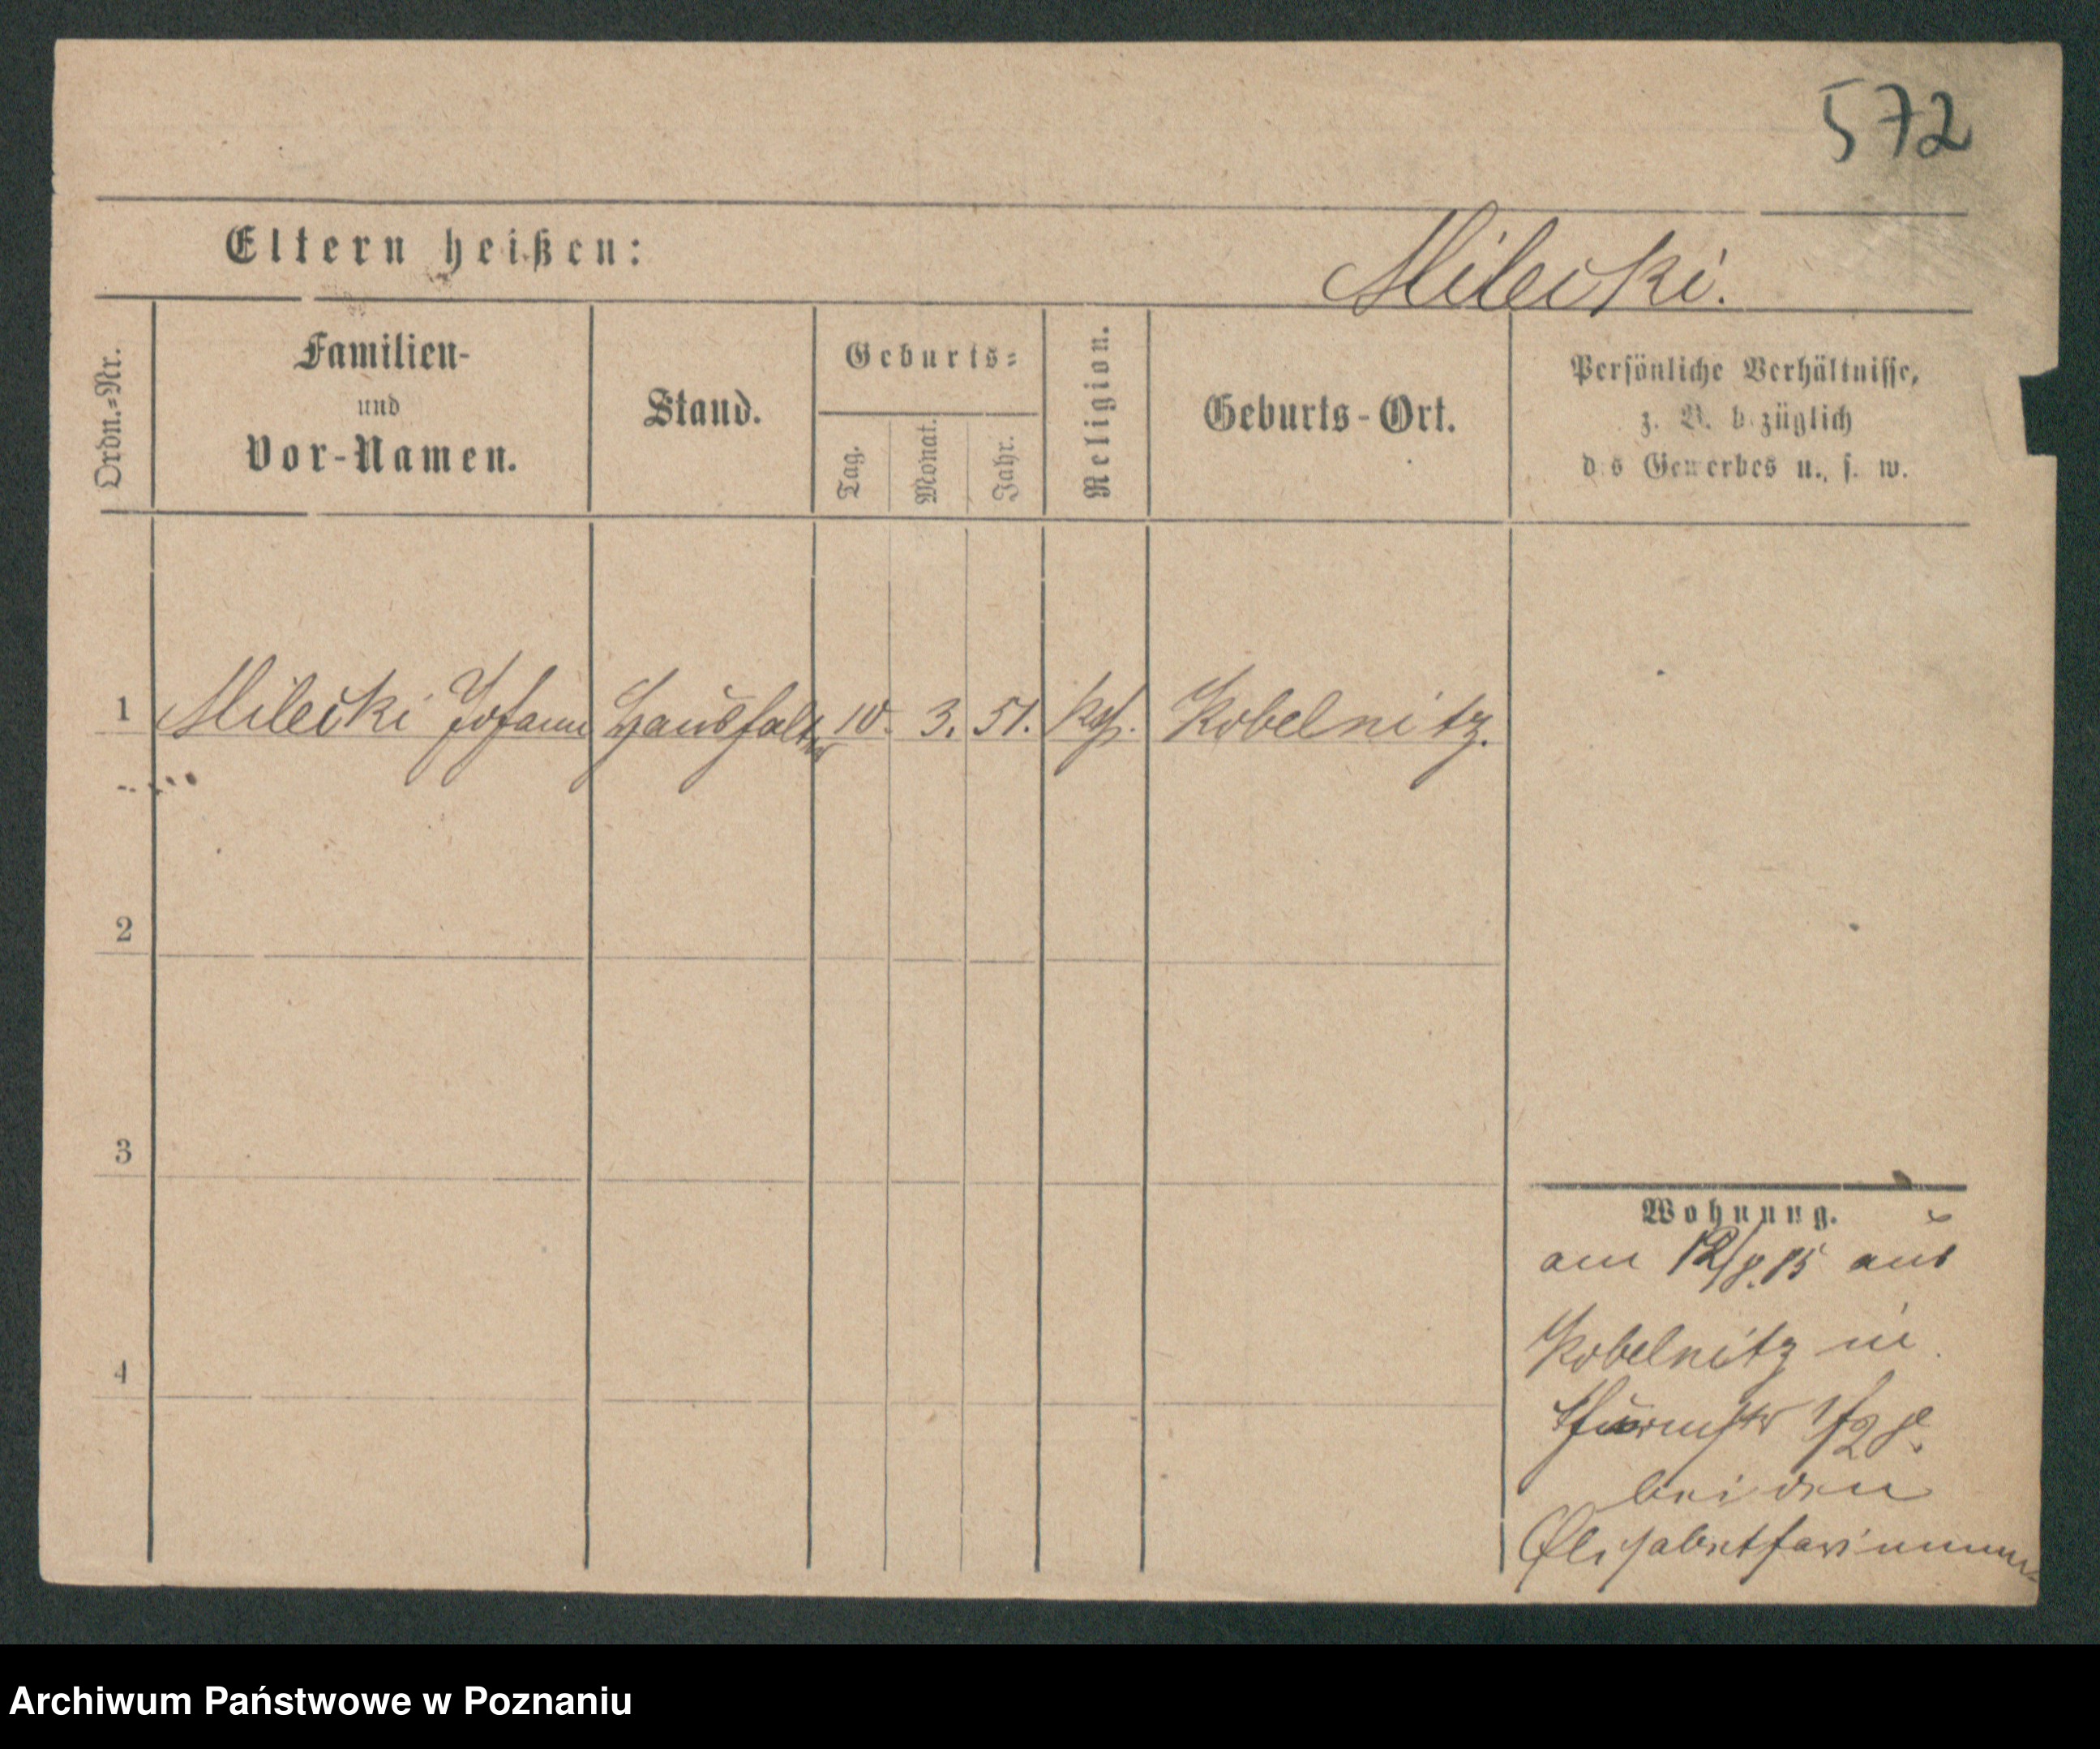 572
Eltern heißen:
Milecki.
Ordn.-Nr.
Familien-
und
Vor-Namen.
Stand.
Geburts-
Tag.
Monat.
Jahr.
Religion.
Geburts-Ort.
Persönliche Verhältnisse,
z. B. bezüglich
des Gewerbes u., s. w.
1 Milecki Johann Haushalter 10. 3. 51. kath. Kobelnitz.
2
3
4
Wohnung.
am 12/8.85 aus
Kobelnitz in
1/2 8.
bei den
Elisabetharinnen
Archiwum Państwowe w Poznaniu